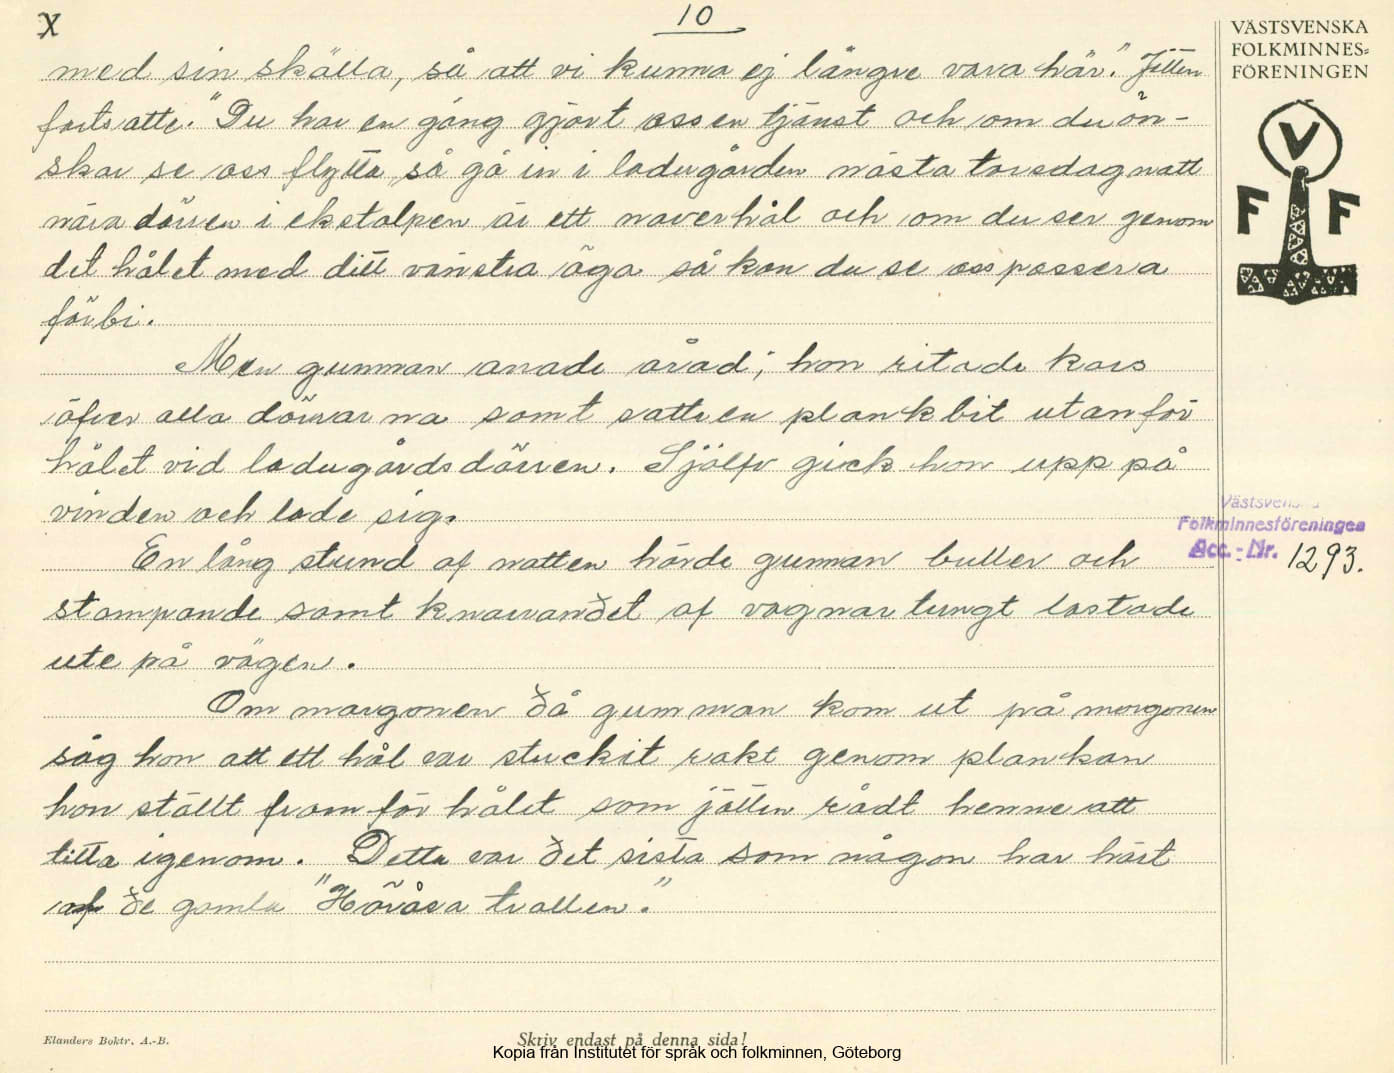 X
10
med sin skälla, så att vi kunna ej längre vara här." Jätten
fortsatte. "Du har en gång gjort oss en tjänst och om du ön-
skar se oss flytta, så gå in i ladugården nästa torsdagnatt
nära dörren i ekstolpen är ett naverhål och om du ser genom
det hålet med ditt vänstra öga så kan du se oss passera
förbi.
Men gumman anade oråd; hon ritade kors
öfver alla dörrarna samt satte en plankbit utanför
hålet vid ladugårdsdörren. Själfv gick hon upp på
vinden och lade sig.
En lång stund af natten hörde gumman buller och
stampande samt knarrandet af vagnar tungt lastade
ute på vägen.
Om morgonen då gumman kom ut på morgonen
såg hon att ett hål var stuckit rakt genom plankan
hon ställt framför hålet som jätten rådt henne att
titta igenom. Detta var det sista som någon har hört
af de gamla "Höråsa trollen."
VÄSTSVENSKA
FOLKMINNES=
FÖRENINGEN
V
F F
Västsvenska
Folkminnesföreningen
Acc.-Nr. 1293.
Elanders Boktr. A.-B.
Skriv endast på denna sida!
Kopia från Institutet för språk och folkminnen, Göteborg